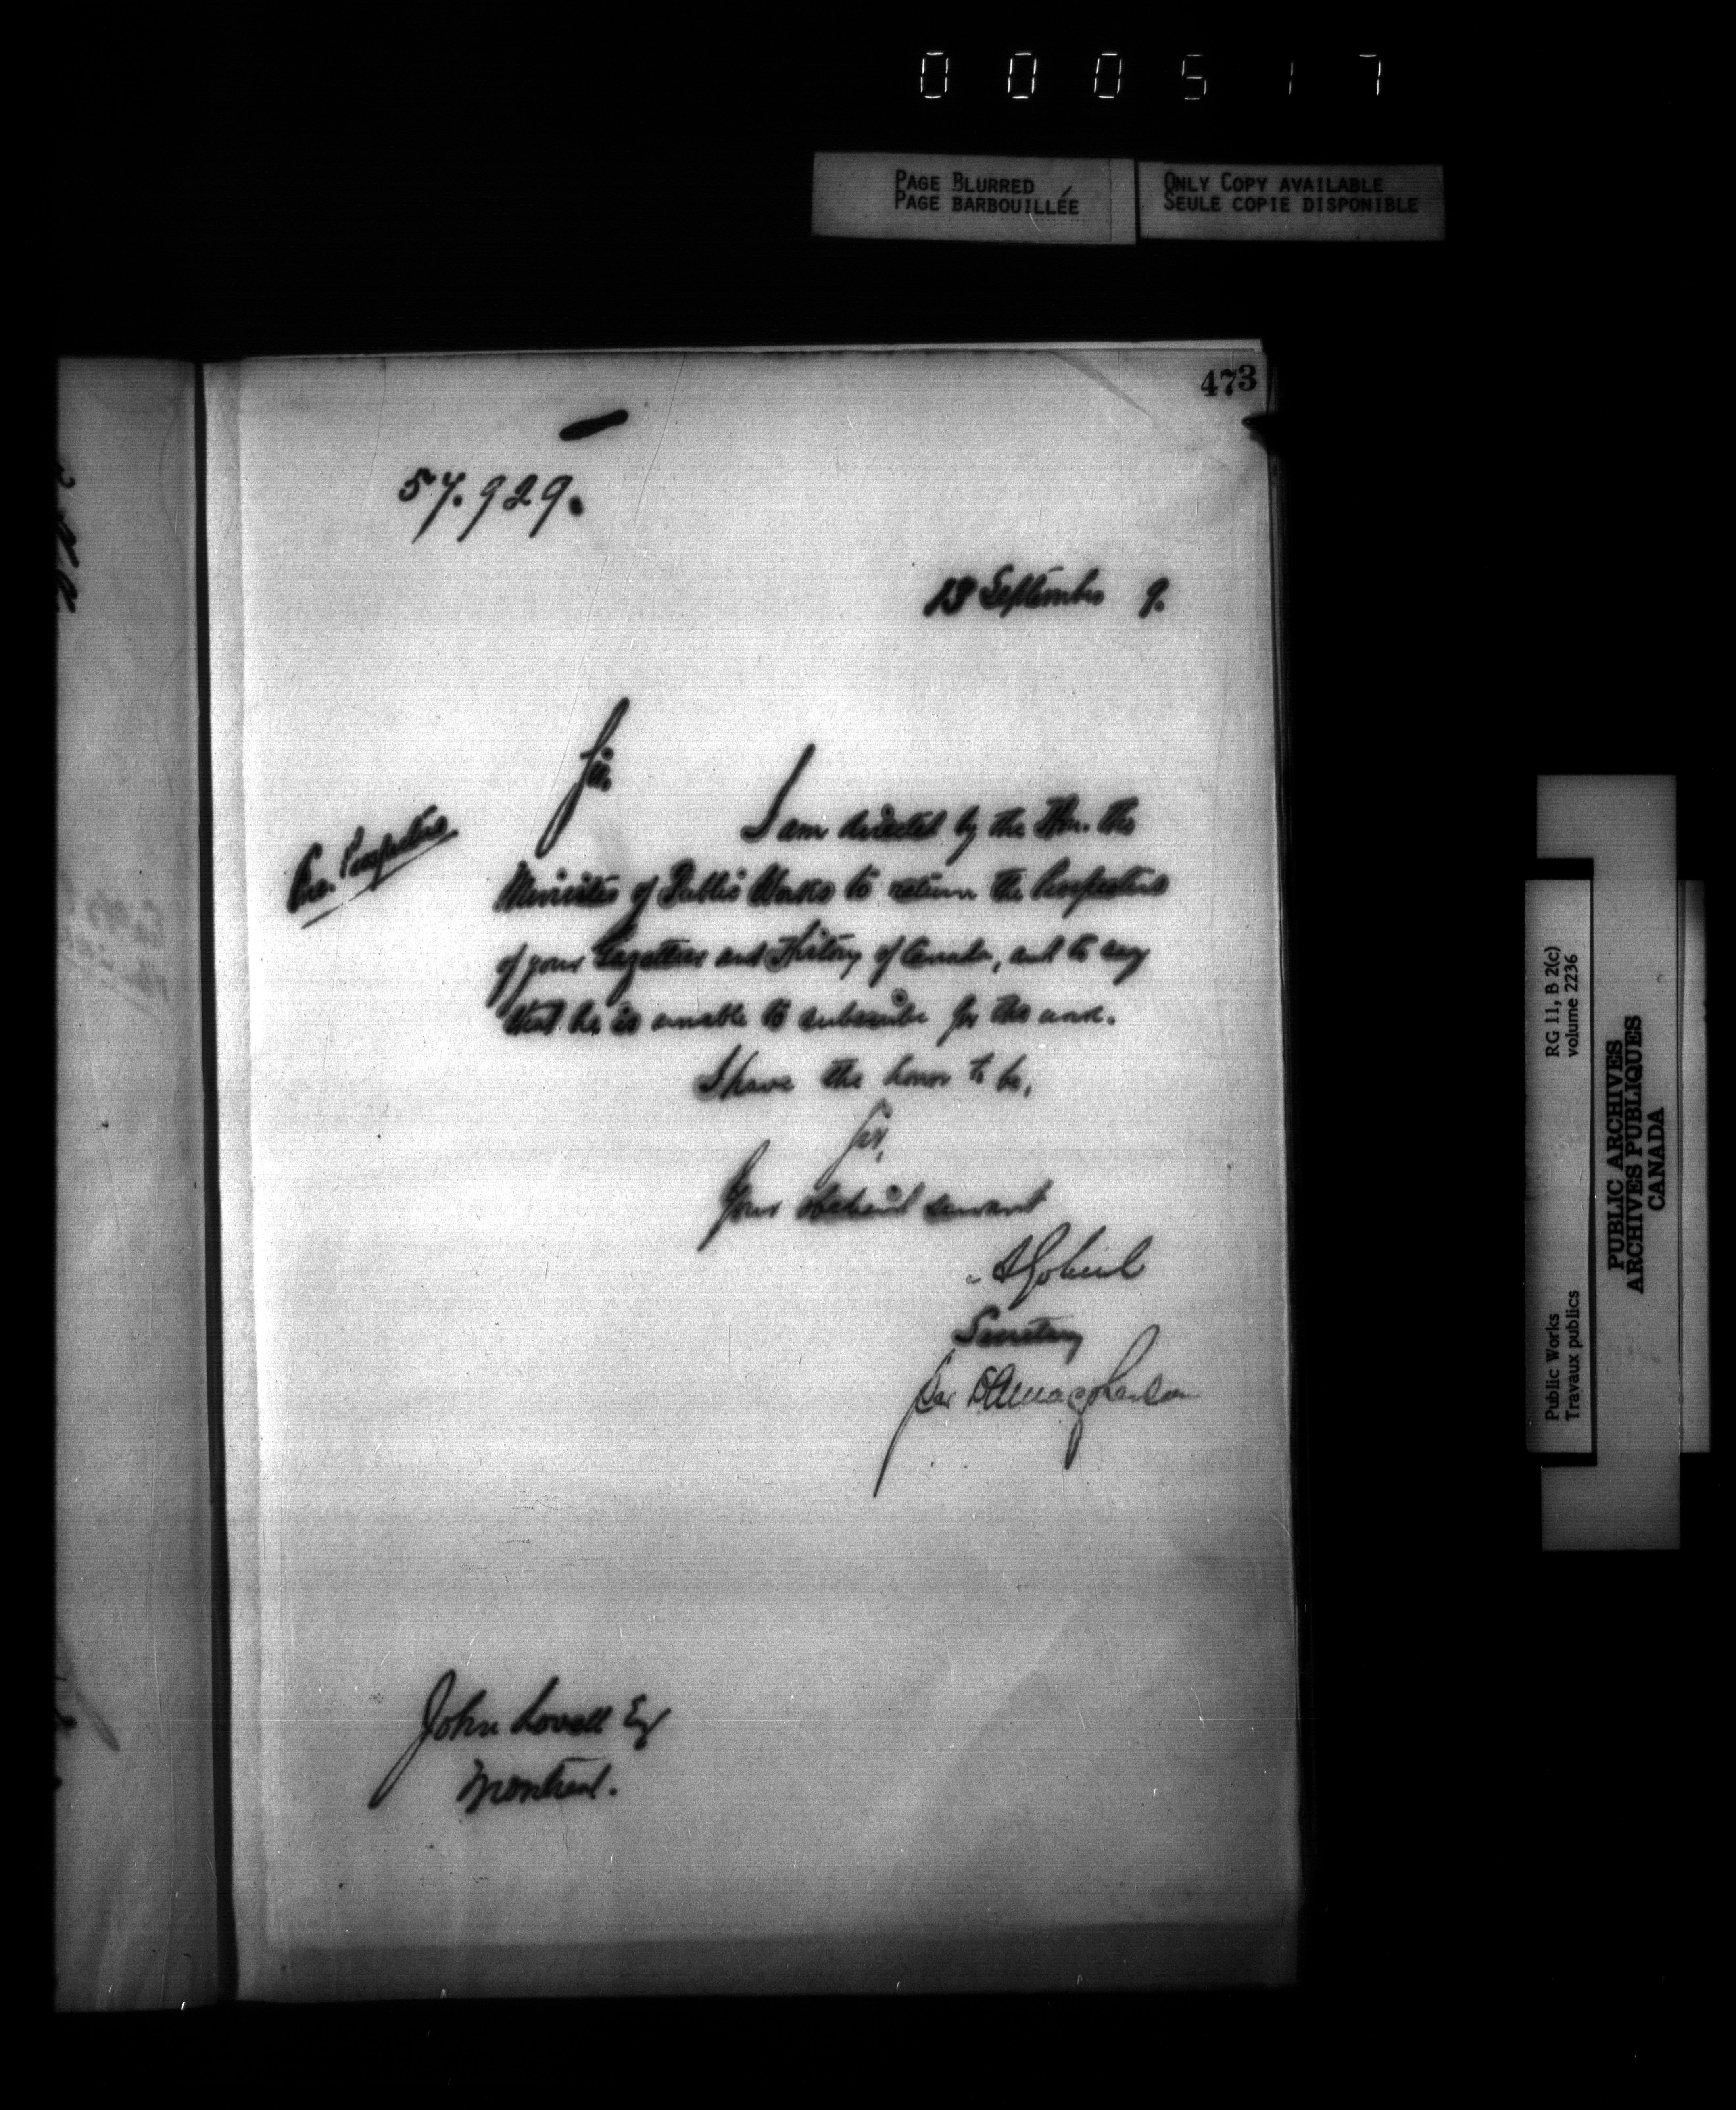 000517
PAGE BLURRED
PAGE BARBOUILLÉE
ONLY COPY AVAILABLE
SEULE COPIE DISPONIBLE
473
57.929.
13 September 9.
Sir.
I am directed by the Hon. the
Enc. Prospectus
Minister of Public Works to return the Prospectus
of your Gazetteer and History of Canada, and to say
that he is unable to subscribe for the
I have the honor to be,
Sir,
Your obedient servant
A Gobeil
Secretary
Per
John Lovell Esq
Montreal.
RG 11, B 2(c)
volume 2236
Public Works
Travaux publics
PUBLIC ARCHIVES
ARCHIVES PUBLIQUES
CANADA